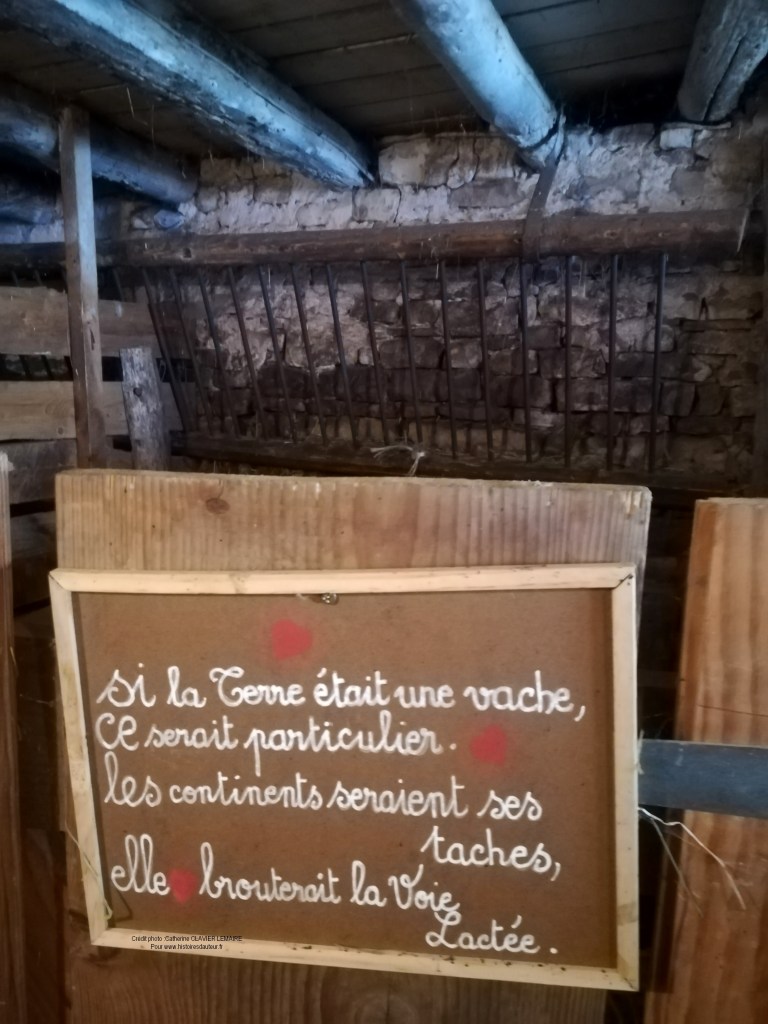 si la Terre était une vache,
ce serait particulier.
les continents seraient ses
taches,
elle brouterait la Voie
Lactée.
Credit photo :Catherine CLAVIER LEMAIRE
Pour www.histoiresdauteur.fr